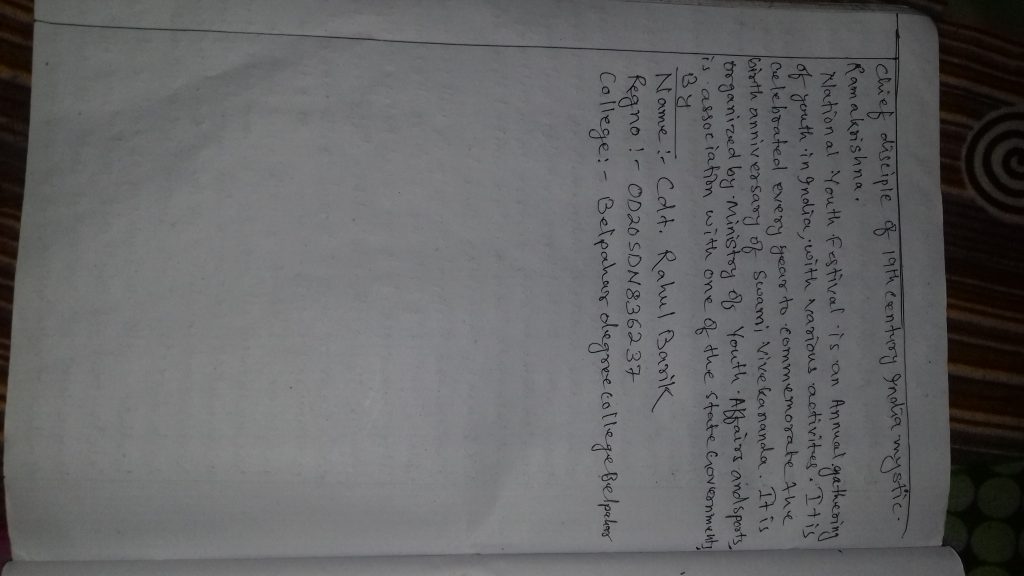 Chief disciple of 19th century India mystic.
Ramakrishna.
National Youth Festival is an Annual gathering
of youth in India, with various activities. It is
Celebrated every year to commemorate the
birth anniversary of Swami Vivekananda. It is
organized by Ministry of Youth Affairs and sports,
is association with one of the state Governments,
By
Name :- Cdt. Rahul Barik
Regno :- OD20SDN836237
College :- Belpahar degree college Belpahar